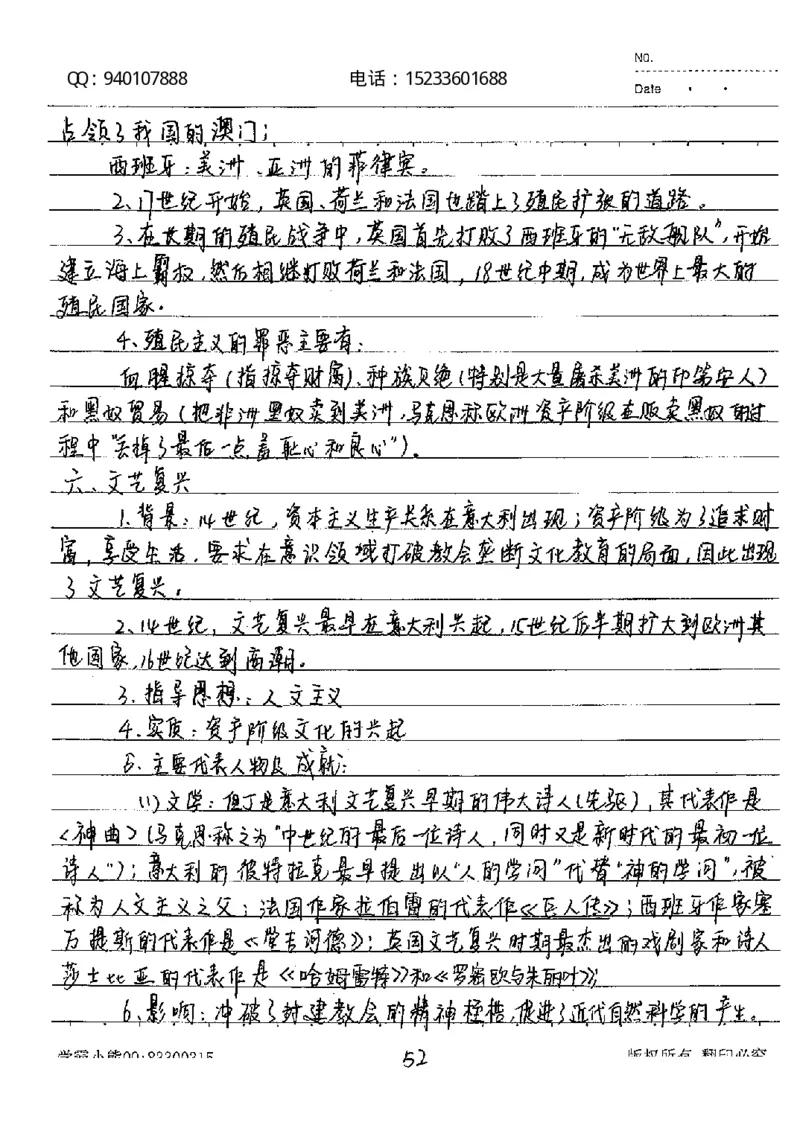 NO.
QQ：940107888 电话：15233601688
Date
占领了我国的澳门；
西班牙：美洲、亚洲的菲律宾。
2、17世纪开始，英国、荷兰和法国也踏上了殖民扩张的道路。
3、在长期的殖民战争中，英国首先打败了西班牙的“无敌舰队”，开始
建立海上霸权，然后相继打败荷兰和法国，18世纪中期，成为世界上最大的
殖民国家。
4、殖民主义的罪恶主要有：
血腥掠夺（指掠夺财富）、种族灭绝（特别是大量屠杀美洲的印第安人）
和黑奴贸易（把非洲黑奴卖到美洲，马克思称欧洲资产阶级在贩卖黑奴的过
程中“丢掉了最后一点羞耻心和良心”）。
六、文艺复兴
1、背景：14世纪，资本主义生产关系在意大利出现；资产阶级为了追求财
富，享受生活，要求在意识领域打破教会垄断文化教育的局面，因此出现
了文艺复兴。
2、14世纪，文艺复兴最早在意大利兴起，15世纪后半期扩大到欧洲其
他国家，16世纪达到高潮。
3、指导思想：人文主义
4、实质：资产阶级文化的兴起
5、主要代表人物及成就：
（1）文学：但丁是意大利文艺复兴早期的伟大诗人（先驱），其代表作是
《神曲》（马克思称之为“中世纪的最后一位诗人，同时又是新时代的最初一位
诗人”）；意大利的彼特拉克最早提出以“人的学问”代替“神的学问”，被
称为人文主义之父；法国作家拉伯雷的代表作《巨人传》；西班牙作家塞
万提斯的代表作是《堂吉诃德》；英国文艺复兴时期最杰出的戏剧家和诗人
莎士比亚的代表作是《哈姆雷特》和《罗密欧与朱丽叶》；
6、影响：冲破了封建教会的精神桎梏，促进了近代自然科学的产生。
学霸小熊QQ:83300315 52 版权所有 翻印必究